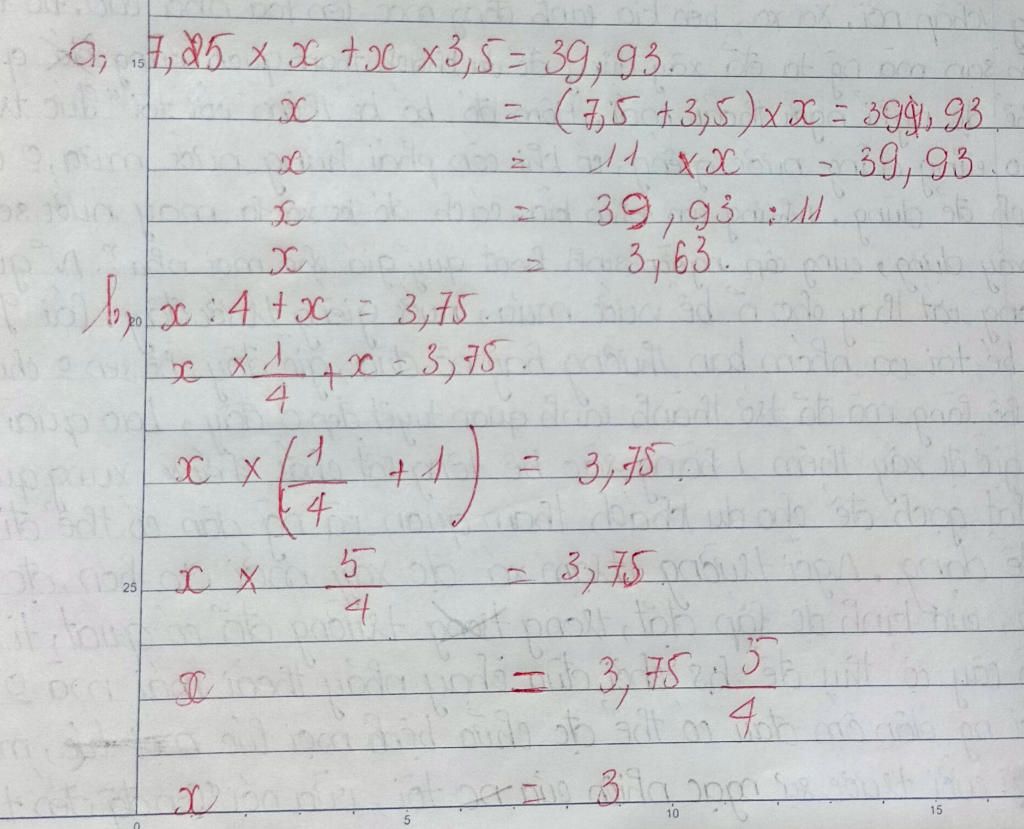 a, 7,5 × x + x × 3,5 = 39,93.
x = (7,5 + 3,5) × x = 39,93
x = 11 × x = 39,93
x = 39,93 : 11
x = 3,63.
b, x : 4 + x = 3,75.
x × 1/4 + x = 3,75.
x × (1/4 + 1) = 3,75.
x × 5/4 = 3,75.
x = 3,75 : 5/4
x = 3